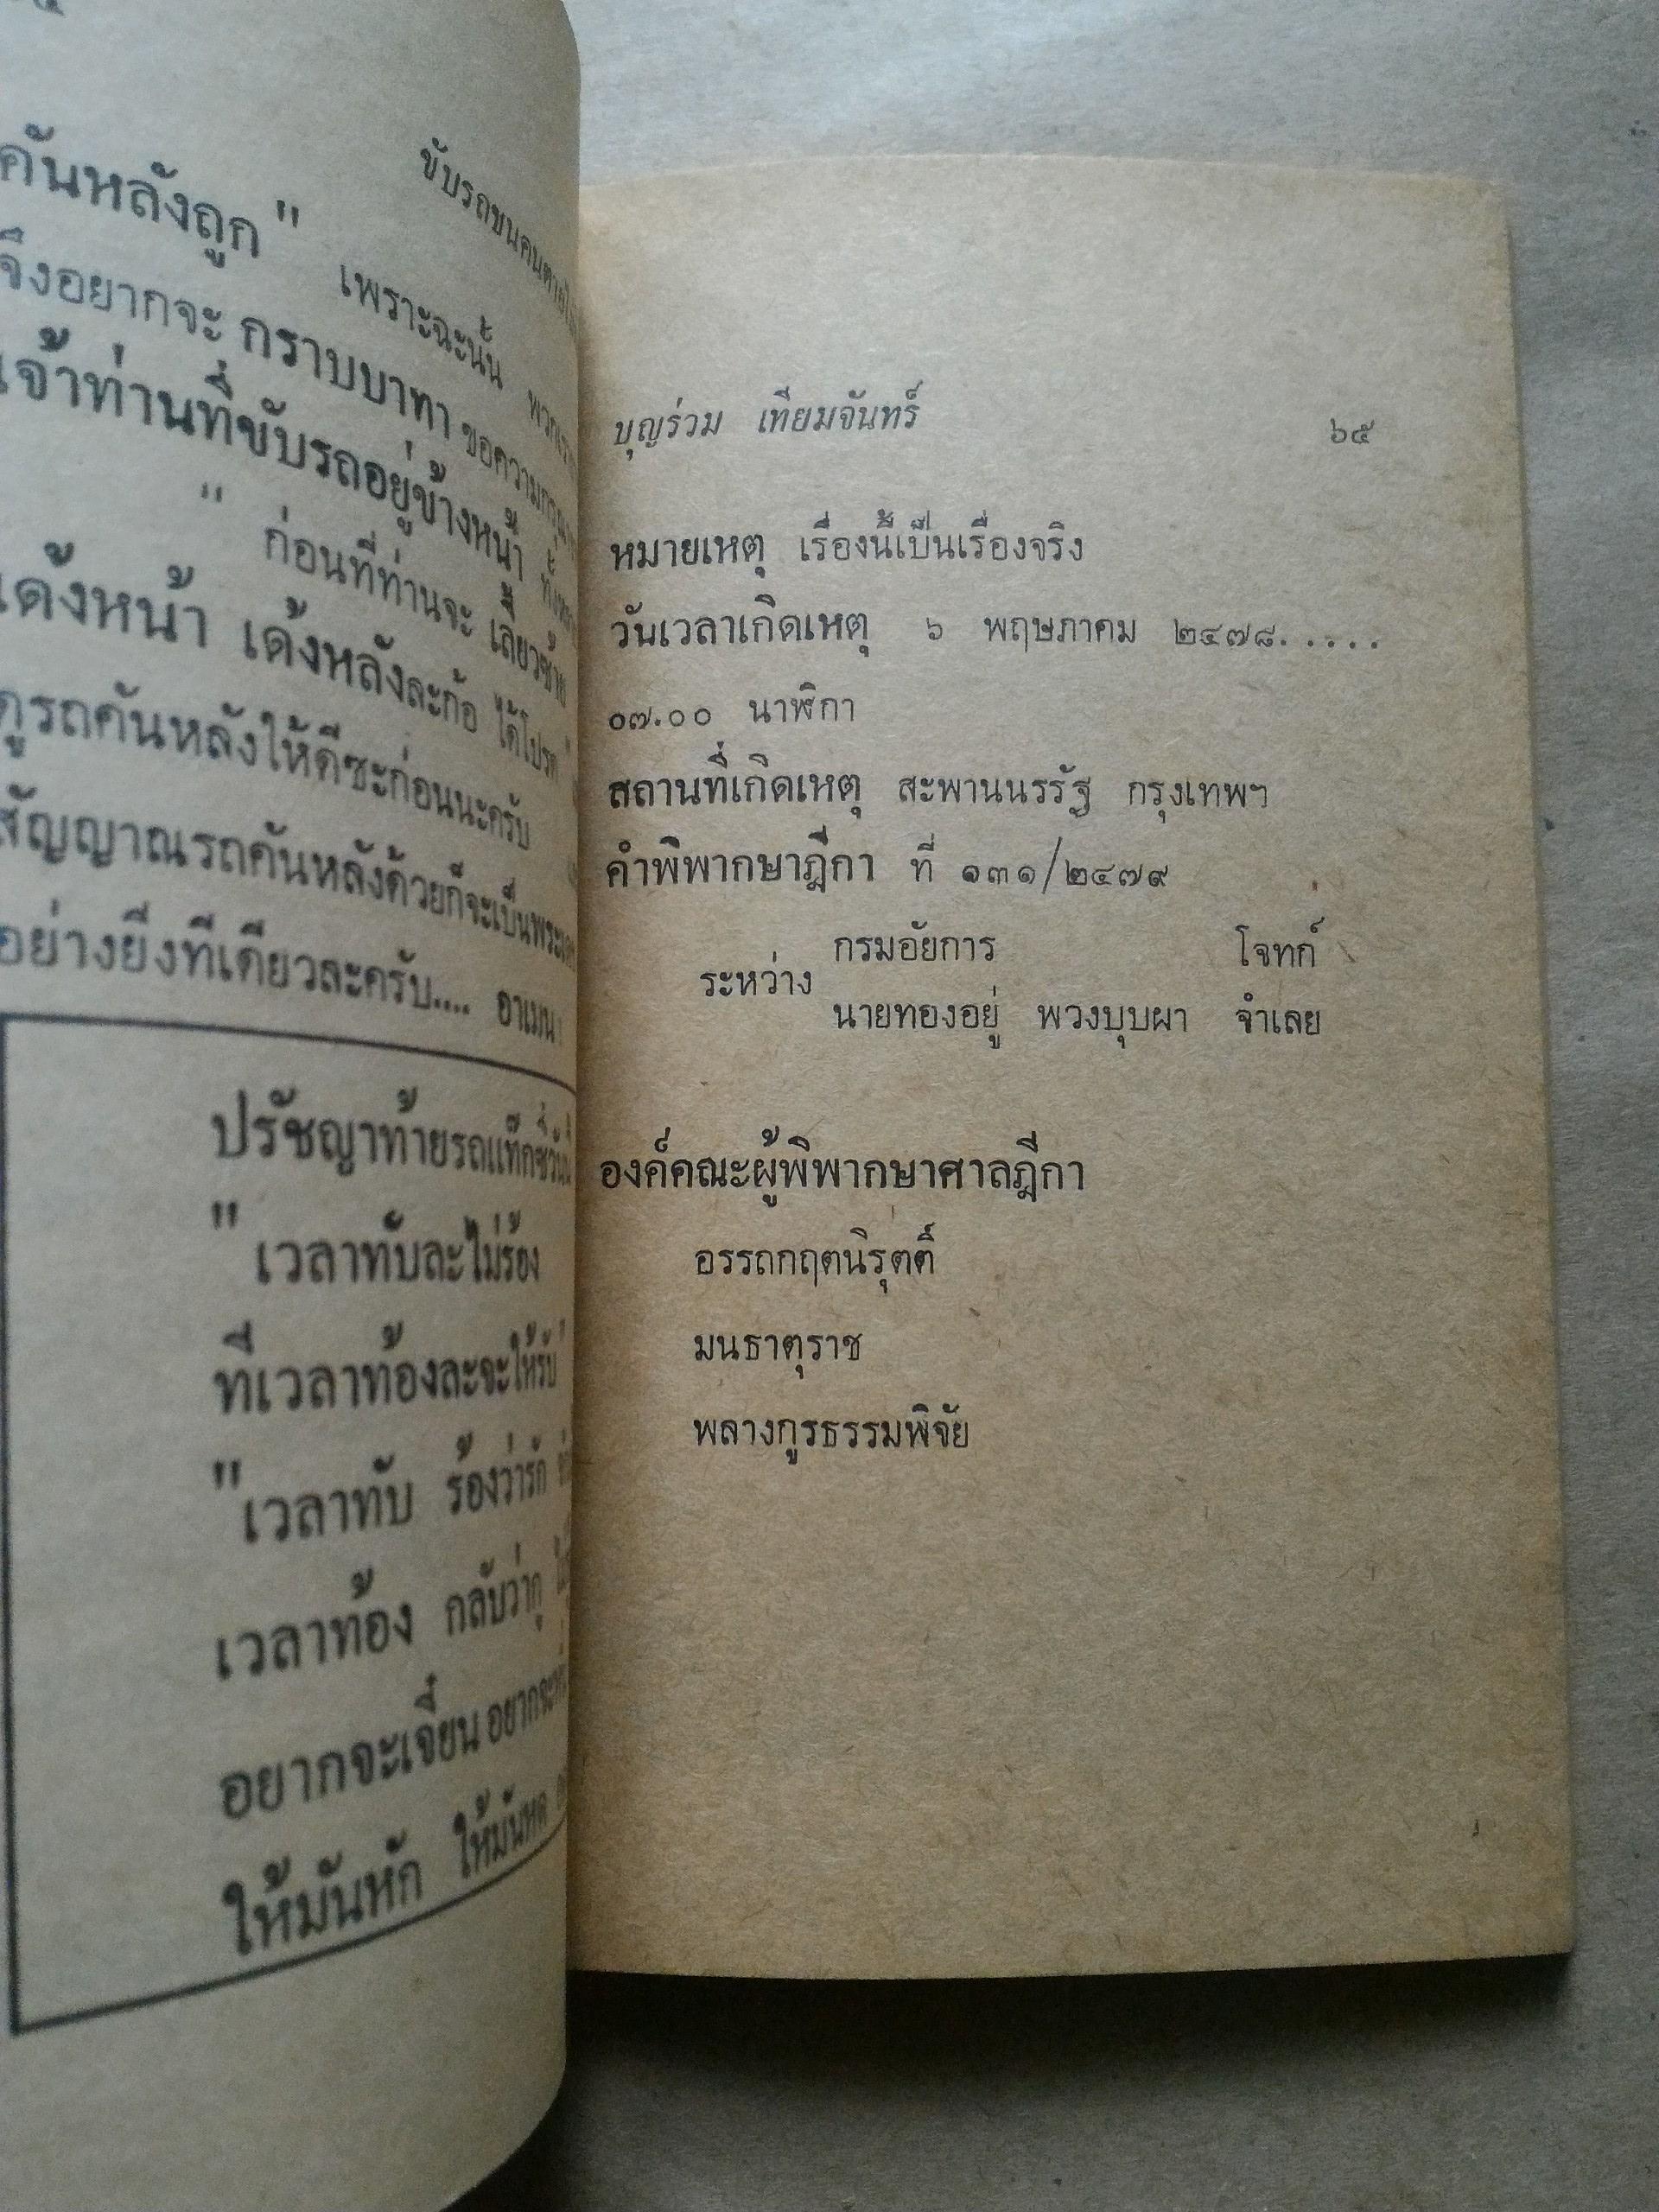 ขับรถชนคนตาย
คันหลังถูก" เพราะฉะนั้น
จึงอยากจะ กราบบาทา ขอความกรุณา
เจ้าท่านที่ขับรถอยู่ข้างหน้า
" ก่อนที่ท่านจะ เลี้ยวซ้าย
เด้งหน้า เด้งหลังละก้อ ได้โปรด
ดูรถคันหลังให้ดีซะก่อนนะครับ
สัญญาณรถคันหลังด้วยก็จะเป็นพระเดช
อย่างยิ่งทีเดียวละครับ.... อาเมน
ปรัชญาท้ายรถแท๊กซี่
" เวลาทับละไม่ร้อง
ทีเวลาท้องละจะให้รับ
"เวลาทับ ร้องว่ารัก
เวลาท้อง กลับว่ากู
อยากจะเจี๋ยน
ให้มันหัก ให้มันหด
บุญร่วม เทียมจันทร์ ๖๕
หมายเหตุ เรื่องนี้เป็นเรื่องจริง
วันเวลาเกิดเหตุ ๖ พฤษภาคม ๒๔๗๘.....
๐๗.๐๐ นาฬิกา
สถานที่เกิดเหตุ สะพานนรรัฐ กรุงเทพฯ
คำพิพากษาฎีกา ที่ ๑๓๑/๒๔๗๙
กรมอัยการ โจทก์
ระหว่าง
นายทองอยู่ พวงบุบผา จำเลย
องค์คณะผู้พิพากษาศาลฎีกา
อรรถกฤตนิรุตติ์
มนธาตุราช
พลางกูรธรรมพิจัย